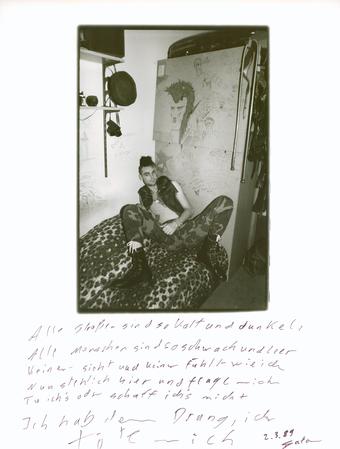 Alle Straßen sind so kalt und dunkel,
Alle Menschen sind so schwach und leer
Keiner sieht und keiner fühlt wie ich
Nun steh ich hier und frage mich
Tu ich's odr schaff ichs nicht
Ich hab den Drang, ich
töte mich
2.3.89